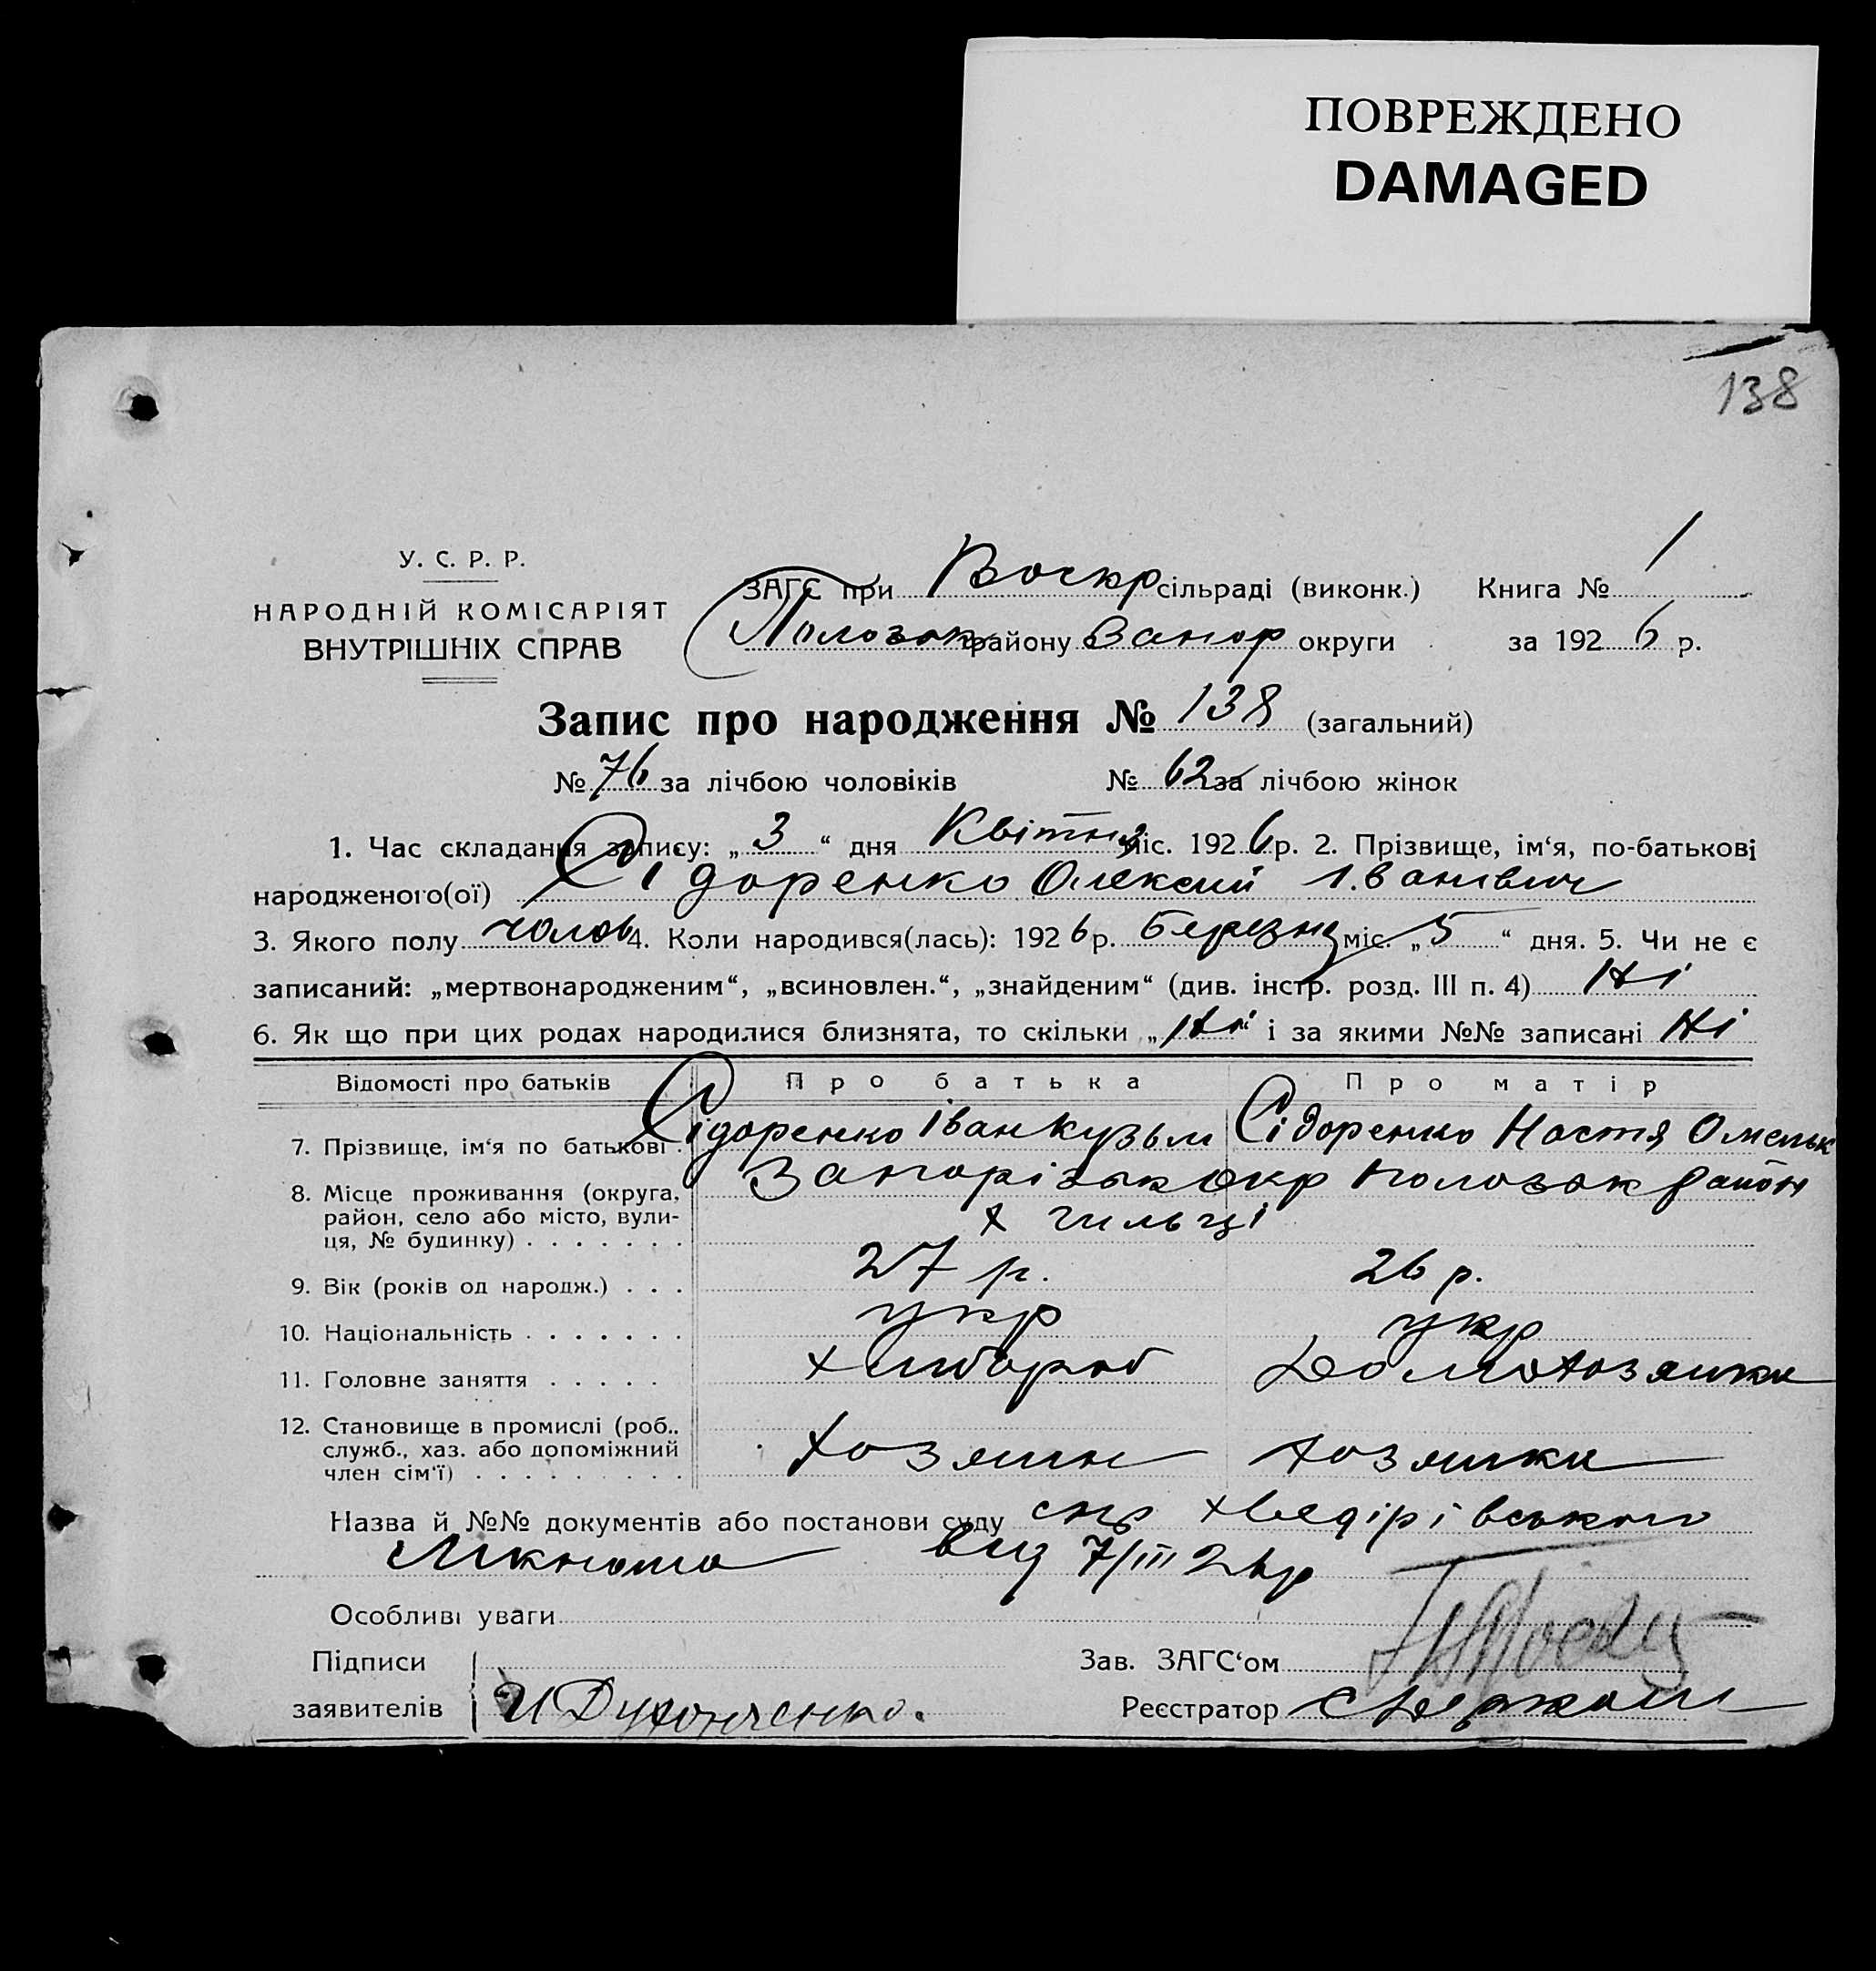 ПОВРЕЖДЕНО
DAMAGED
138
У. С. Р. Р.
НАРОДНІЙ КОМІСАРІЯТ
ВНУТРІШНІХ СПРАВ
ЗАГС при Воскр сільраді (виконк.) Книга № 1
Пологок району Запор округи за 1926 р.
Запис про народження № 138 (загальний)
№ 76 за лічбою чоловіків № 62 за лічбою жінок
1. Час складання запису: „3“ дня Квітня міс. 1926 р. 2. Прізвище, ім‘я, по-батькові
народженого(ої) Сідоренко Олексий Іванівич
3. Якого полу чолов 4. Коли народився(лась): 1926 р. Березня міс. „5“ дня. 5. Чи не є
записаний: „мертвонародженим“, „всиновлен.“, „знайденим“ (див. інстр. розд. III п. 4) Ні
6. Як що при цих родах народилися близнята, то скільки „Ні“ і за якими №№ записані Ні
Відомості про батьків Про батька Про матір
7. Прізвище, ім‘я по батькові . Сідоренко Іван Кузьм Сідоренко Настя Омельк
8. Місце проживання (округа, Запорізьк окр Пологок район
район, село або місто, вули- х
ця, № будинку) . . . . . . .
9. Вік (років од народж.) . . . 27 р. 26 р.
10. Національність . . . . . . . укр укр
11. Головне заняття . . . . . хлибороб Домохозяйка
12. Становище в промислі (роб.,
служб., хаз. або допоміжний хозяин хозяйка
член сім‘ї) . . . . . . . . .
Назва й №№ документів або постанови суду Хведірівського
вид 7/III 26р
Особливі уваги
Підписи Зав. ЗАГС‘ом
заявителів И Реєстратор